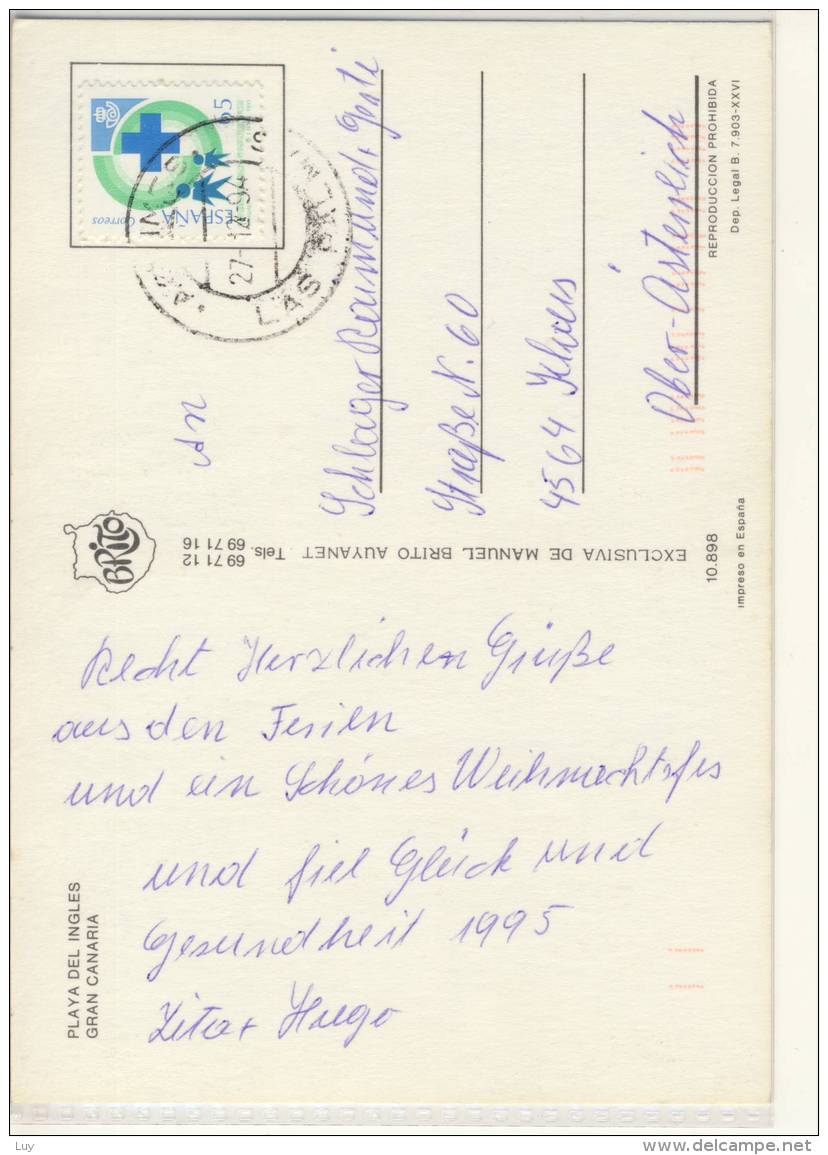 Recht Herzlichen Grüße
aus den Ferien
und ein Schönes Weihnachtsfes
und fiel Glück und
Gesundheit 1995
Zita + Hugo
PLAYA DEL INGLES
GRAN CANARIA
BRITO
EXCLUSIVA DE MANUEL BRITO AUYANET. Tels. 69 71 12
69 71 16
An
Schlager Raimund +
Straße N. 60
4564 Klaus
Ober-Östereich
ESPAÑA
Correos
65
27-12-94
LAS
REPRODUCCION PROHIBIDA
Dep. Legal B. 7.903-XXVI
10.898
impreso en España
Luy
www.delcampe.net